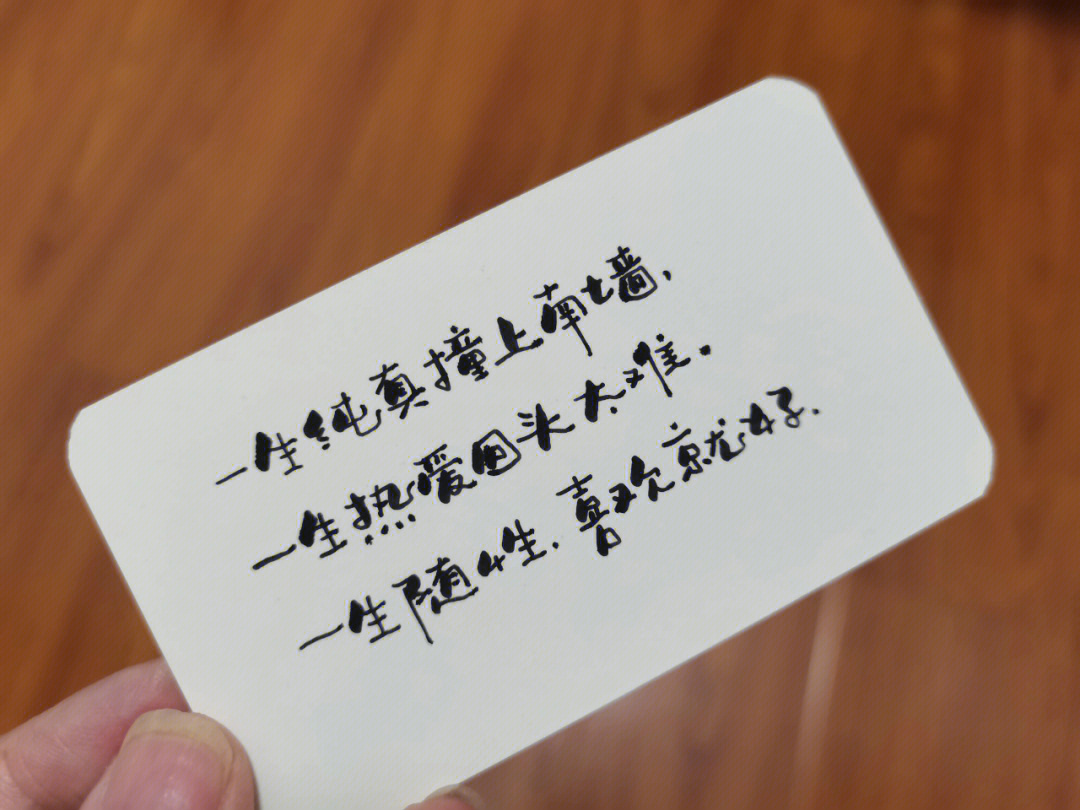 一生纯真撞上南墙,
一生热爱回头太难.
一生随性.喜欢就好.